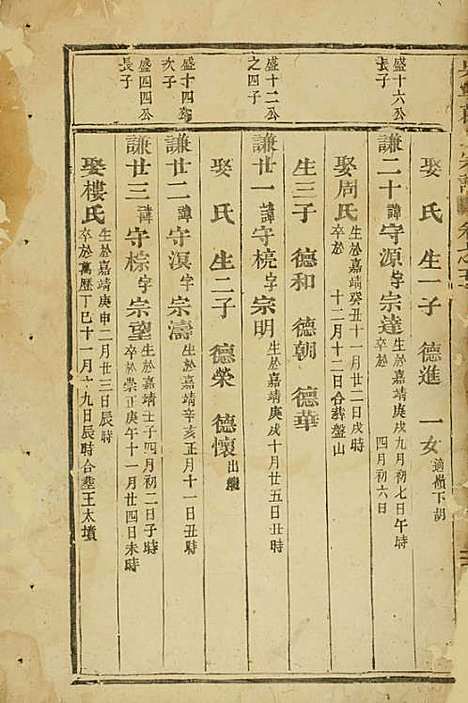 盛十六公
長子
娶 氏 生一子 德進 一女 適嶺下胡
謙二十 諱 守源 字 宗達 生於嘉靖庚戌九月初七日午時
卒於 四月初六日
娶周氏 生於嘉靖癸丑十一月廿二日戌時
卒於 十二月十二日合葬盤山
生三子 德和 德朝 德華
盛十二公
之四子
謙廿一 諱 守梡 字 宗明 生於嘉靖庚戌十月廿五日丑時
娶 氏 生二子 德榮 德懷 出繼
盛十四公
次子
謙廿二 諱 守溟 字 宗濤 生於嘉靖辛亥正月十一日丑時
盛四四公
長子
謙廿三 諱 守棕 字 宗望 生於嘉靖壬子四月初二日子時
卒於崇正庚午十一月廿四日未時
娶樓氏 生於嘉靖庚申二月廿三日辰時
卒於萬歷丁巳十一月 九日辰時合塟王太墳